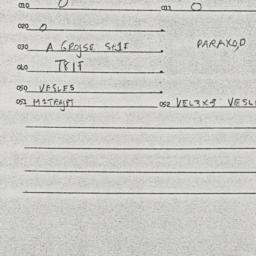 010 O 011 O
020 O
030 A GROJSE SHIF PARAXO,O
040 TRIF
050 VESLES
051 MITRAJM 052 VEL3X3 VESL